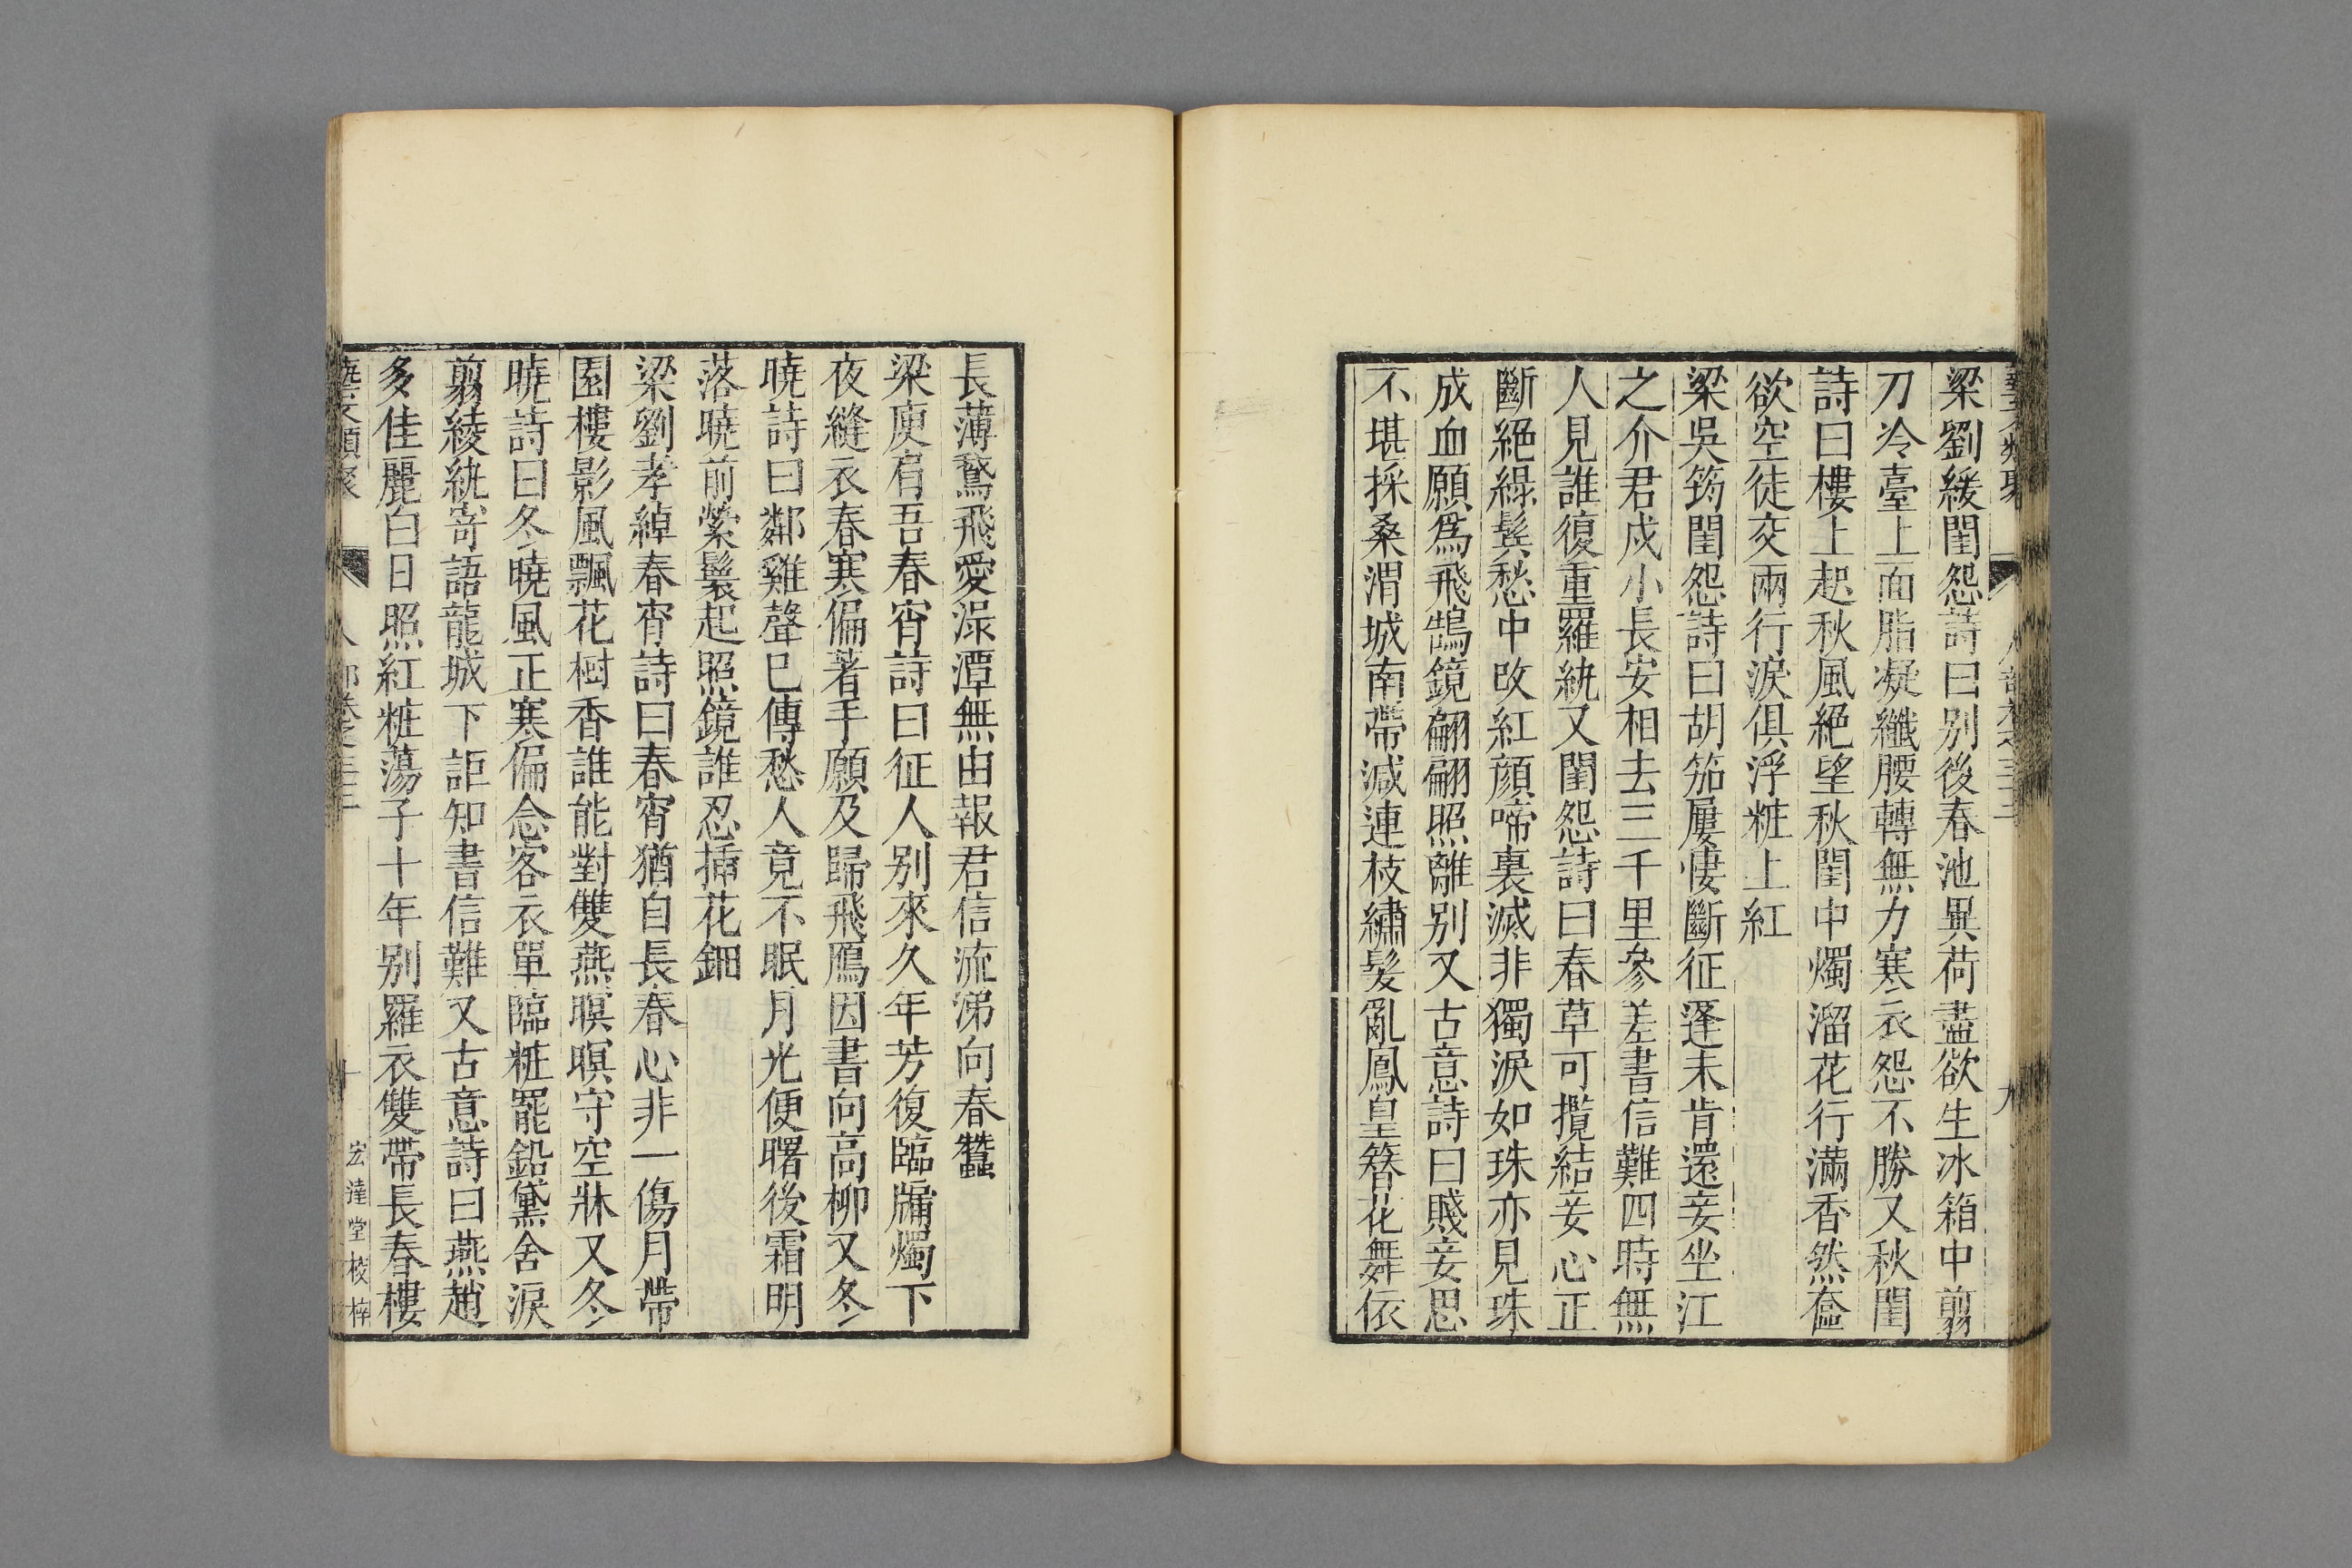 梁劉緩閨怨詩曰别後春池異荷盡欲生冰箱中剪
刀冷臺上面脂凝纖腰轉無力寒衣怨不勝又秋閨
詩曰樓上起秋風絕望秋閨中燭溜花行滿香然奩
欲空徒交兩行淚俱浮粧上紅
梁吳筠閨怨詩曰胡笳屢悽斷征蓬未肯還妾坐江
之介君戍小長安相去三千里參差書信難四時無
人見誰復重羅紈又閨怨詩曰春草可攬結妾心正
斷絕綠鬢愁中改紅顔啼裏滅非獨淚如珠亦見珠
成血願爲飛鵠鏡翩翩照離别又古意詩曰賤妾思
不堪採桑渭城南帶減連枝繡髮亂鳳皇簪花舞依
長薄鶖飛愛淥潭無由報君信流涕向春蠶
梁庾肩吾春宵詩曰征人别來久年芳復臨牖燭下
夜縫衣春寒偏著手願及歸飛鴈因書向高柳又冬
曉詩曰鄰雞聲已傳愁人竟不眠月光便曙後霜明
落曉前縈鬟起照鏡誰忍揷花鈿
梁劉孝綽春宵詩曰春宵猶自長春心非一傷月帶
園樓影風飄花樹香誰能對雙燕暝暝守空牀又冬
曉詩曰冬曉風正寒偏念客衣單臨粧罷鉛黛含淚
剪綾紈寄語龍城下詎知書信難又古意詩曰燕趙
多佳麗白日照紅粧蕩子十年别羅衣雙帶長春樓
宏達堂校梓